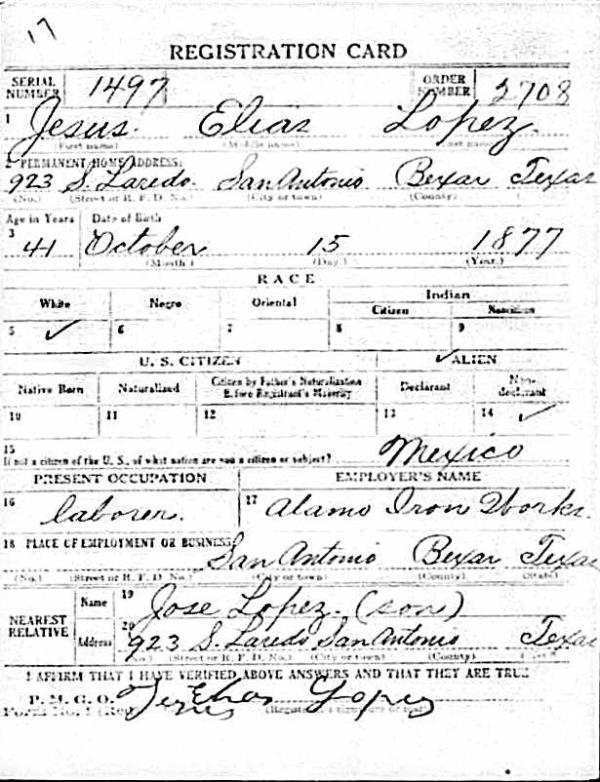 17
REGISTRATION CARD
SERIAL NUMBER 1497 ORDER NUMBER 2708
1 Jesus. Elias Lopez.
(First name) (Middle name)
2 PERMANENT HOME ADDRESS:
923 S. Laredo. San Antonio Bexar Texas
(No.) (Street or R. F. D. No.) (City or town) (County)
Age in Years Date of Birth
3 41 October 15 1877
(Month) (Day) (Year)
RACE
White Negro Oriental Indian
Citizen
5 ✓ 6 7 8 9
U. S. CITIZEN ✓ ALIEN
Native Born Naturalized Citizen by Father's Naturalization Before Registrant's Majority Declarant Non-declarant
10 11 12 13 14 ✓
15
If not a citizen of the U. S., of what nation are you a citizen or subject? Mexico
PRESENT OCCUPATION EMPLOYER'S NAME
16 laborer. 17 Alamo Iron Works.
18 PLACE OF EMPLOYMENT OR BUSINESS:
San Antonio Bexar Texas
(No.) (Street or R. F. D. No.) (City or town) (County) (State)
NEAREST RELATIVE Name 19 Jose Lopez. (son)
Address 20 923 S. Laredo San Antonio Texas
(No.) (Street or R. F. D. No.) (City or town) (County)
I AFFIRM THAT I HAVE VERIFIED ABOVE ANSWERS AND THAT THEY ARE TRUE
P. M. G. O.
Form No. 1 (Red) Elias Lopez